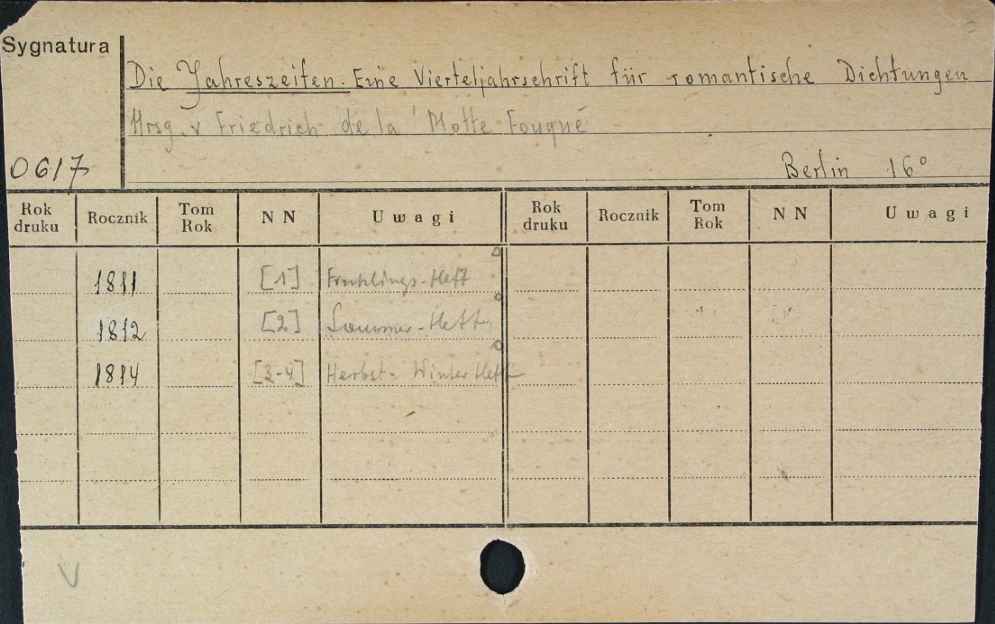 Sygnatura
Die Jahreszeiten. Eine Vierteljahrschrift für romantische Dichtungen
Hrsg. v Friedrich de la Motte Fouqué
0617 Berlin 16°
Rok druku Rocznik Tom Rok N N Uwagi Rok druku Rocznik Tom Rok N N Uwagi
1811 [1] Fruhlings-Heft
1812 [2] Sommer-Heft
1814 [3-4] Herbst- Winter Heft
V